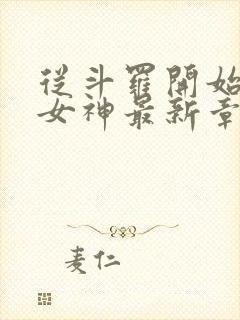 從斗羅開始
女神最新章
麦仁